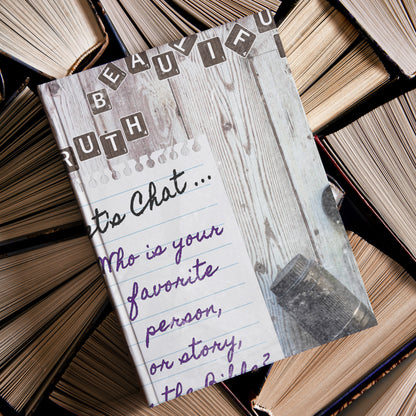 BEAUTIFU
RUTH
t's Chat ...
Who is your
favorite
person,
or story,
the Bible?